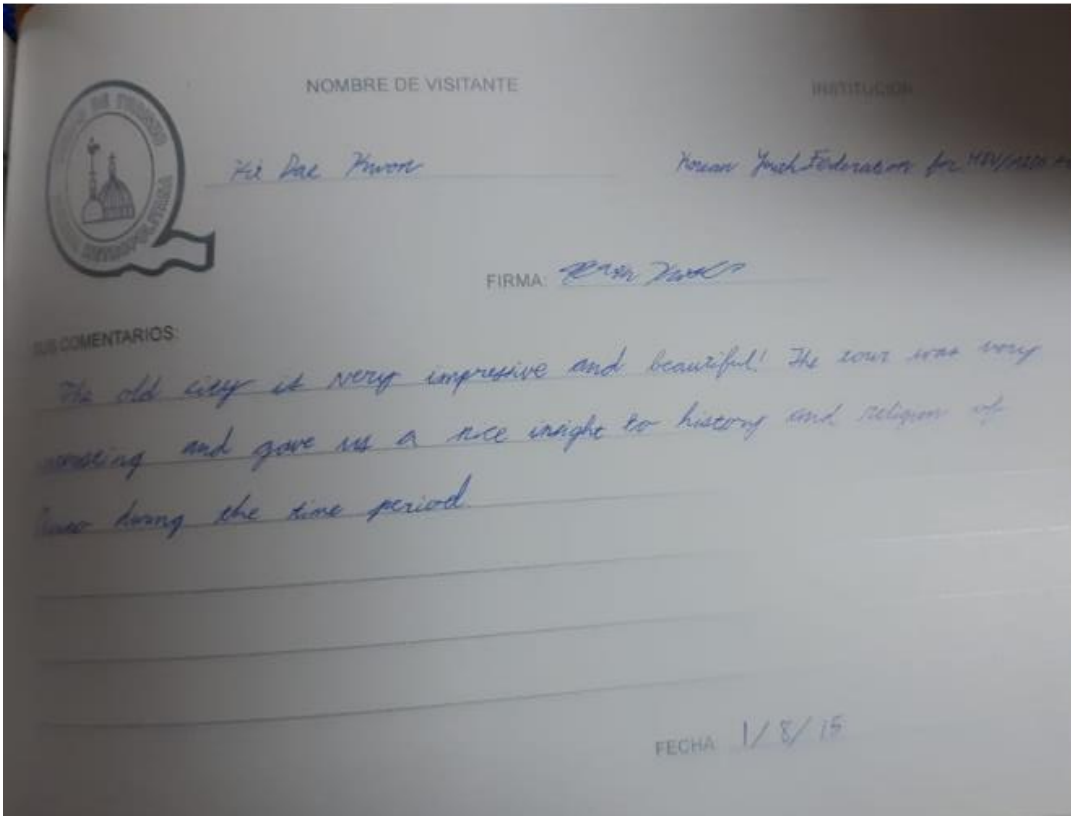 NOMBRE DE VISITANTE
INSTITUCIÓN
Dae Kwon
Korean Youth Federation for HIV/AIDS
FIRMA:
SUS COMENTARIOS:
The old city is very impressive and beautiful! The tour was very
and gave us a nice insight to history and religion of
during the time period.
FECHA 1/8/15